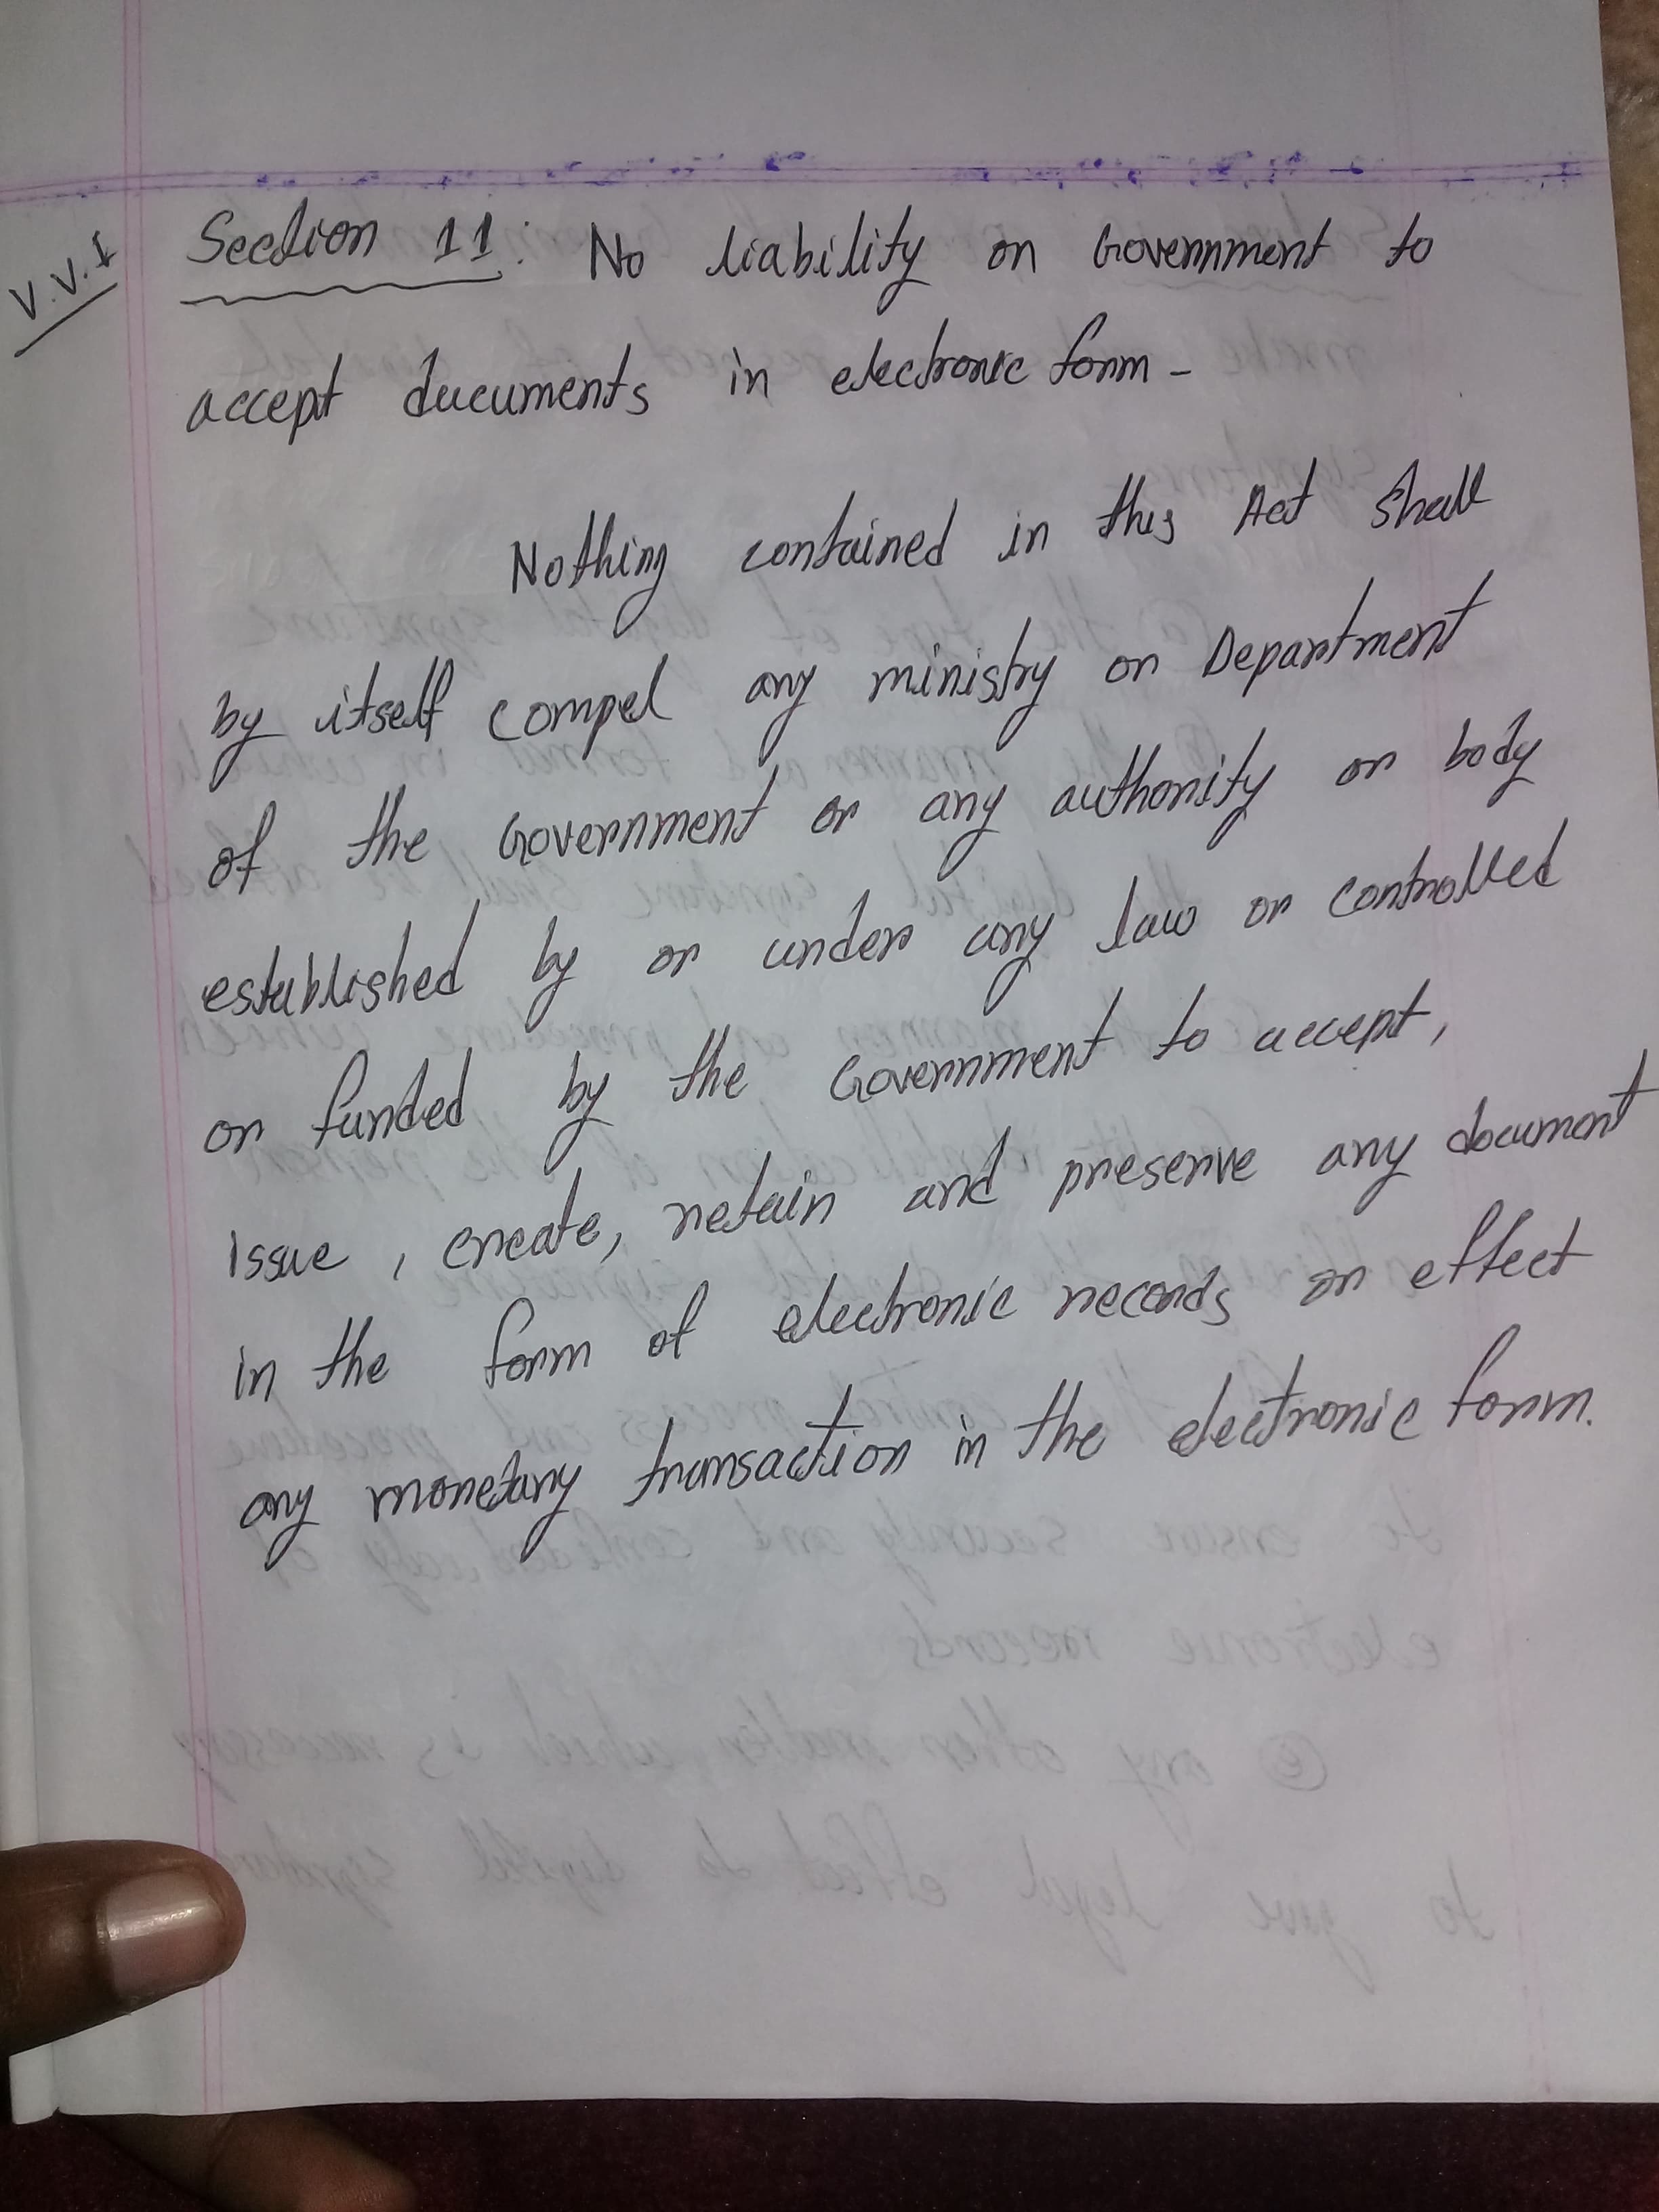 V.V.I
Section 11: No liability on Government to
accept ducuments in electronic form -
Nothing contained in this Act Shall
by itself compel any ministry or Department
of the Government or any authority or body
established by or under any law or controlled
or funded by the Government to accept,
issue, create, retain and preserve any document
in the form of electronic records or effect
any monetary transaction in the electronic form.